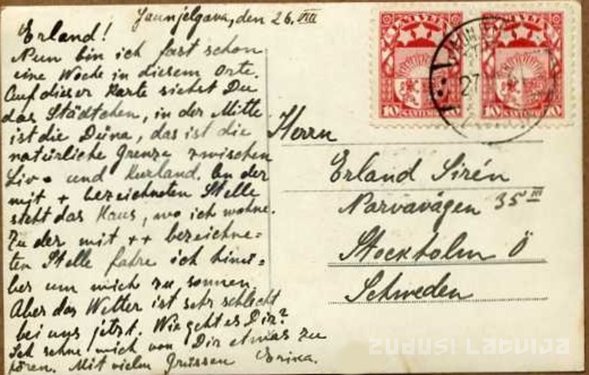 Jaunjelgava, den 26. VIII
Erland!
Nun bin ich fast schon
eine Woche in diesem Orte.
Auf dieser Karte siehst Du
das Städtchen, in der Mitte
ist die Düna, das ist die
natürliche Grenze zwischen
Liv= und Kurland. An der
mit + bezeichneten Stelle
steht das Haus, wo ich wohne.
Zu der mit ++ bezeichne=
ten Stelle fahre ich hinü=
ber um mich zu sonnen.
Aber das Wetter ist sehr schlecht
bei uns jetzt. Wie geht es Dir?
Ich sehne mich von Dir etwas zu
hören. Mit vielen Grüssen Erika.
Herrn
Erland Sirén
Narvavägen 35 III
Stockholm Ö
Schweden
LATVIJA
10 SANTIMU 10
LATVIJA
10 SANTIMU 10
27
zudusi Latvija